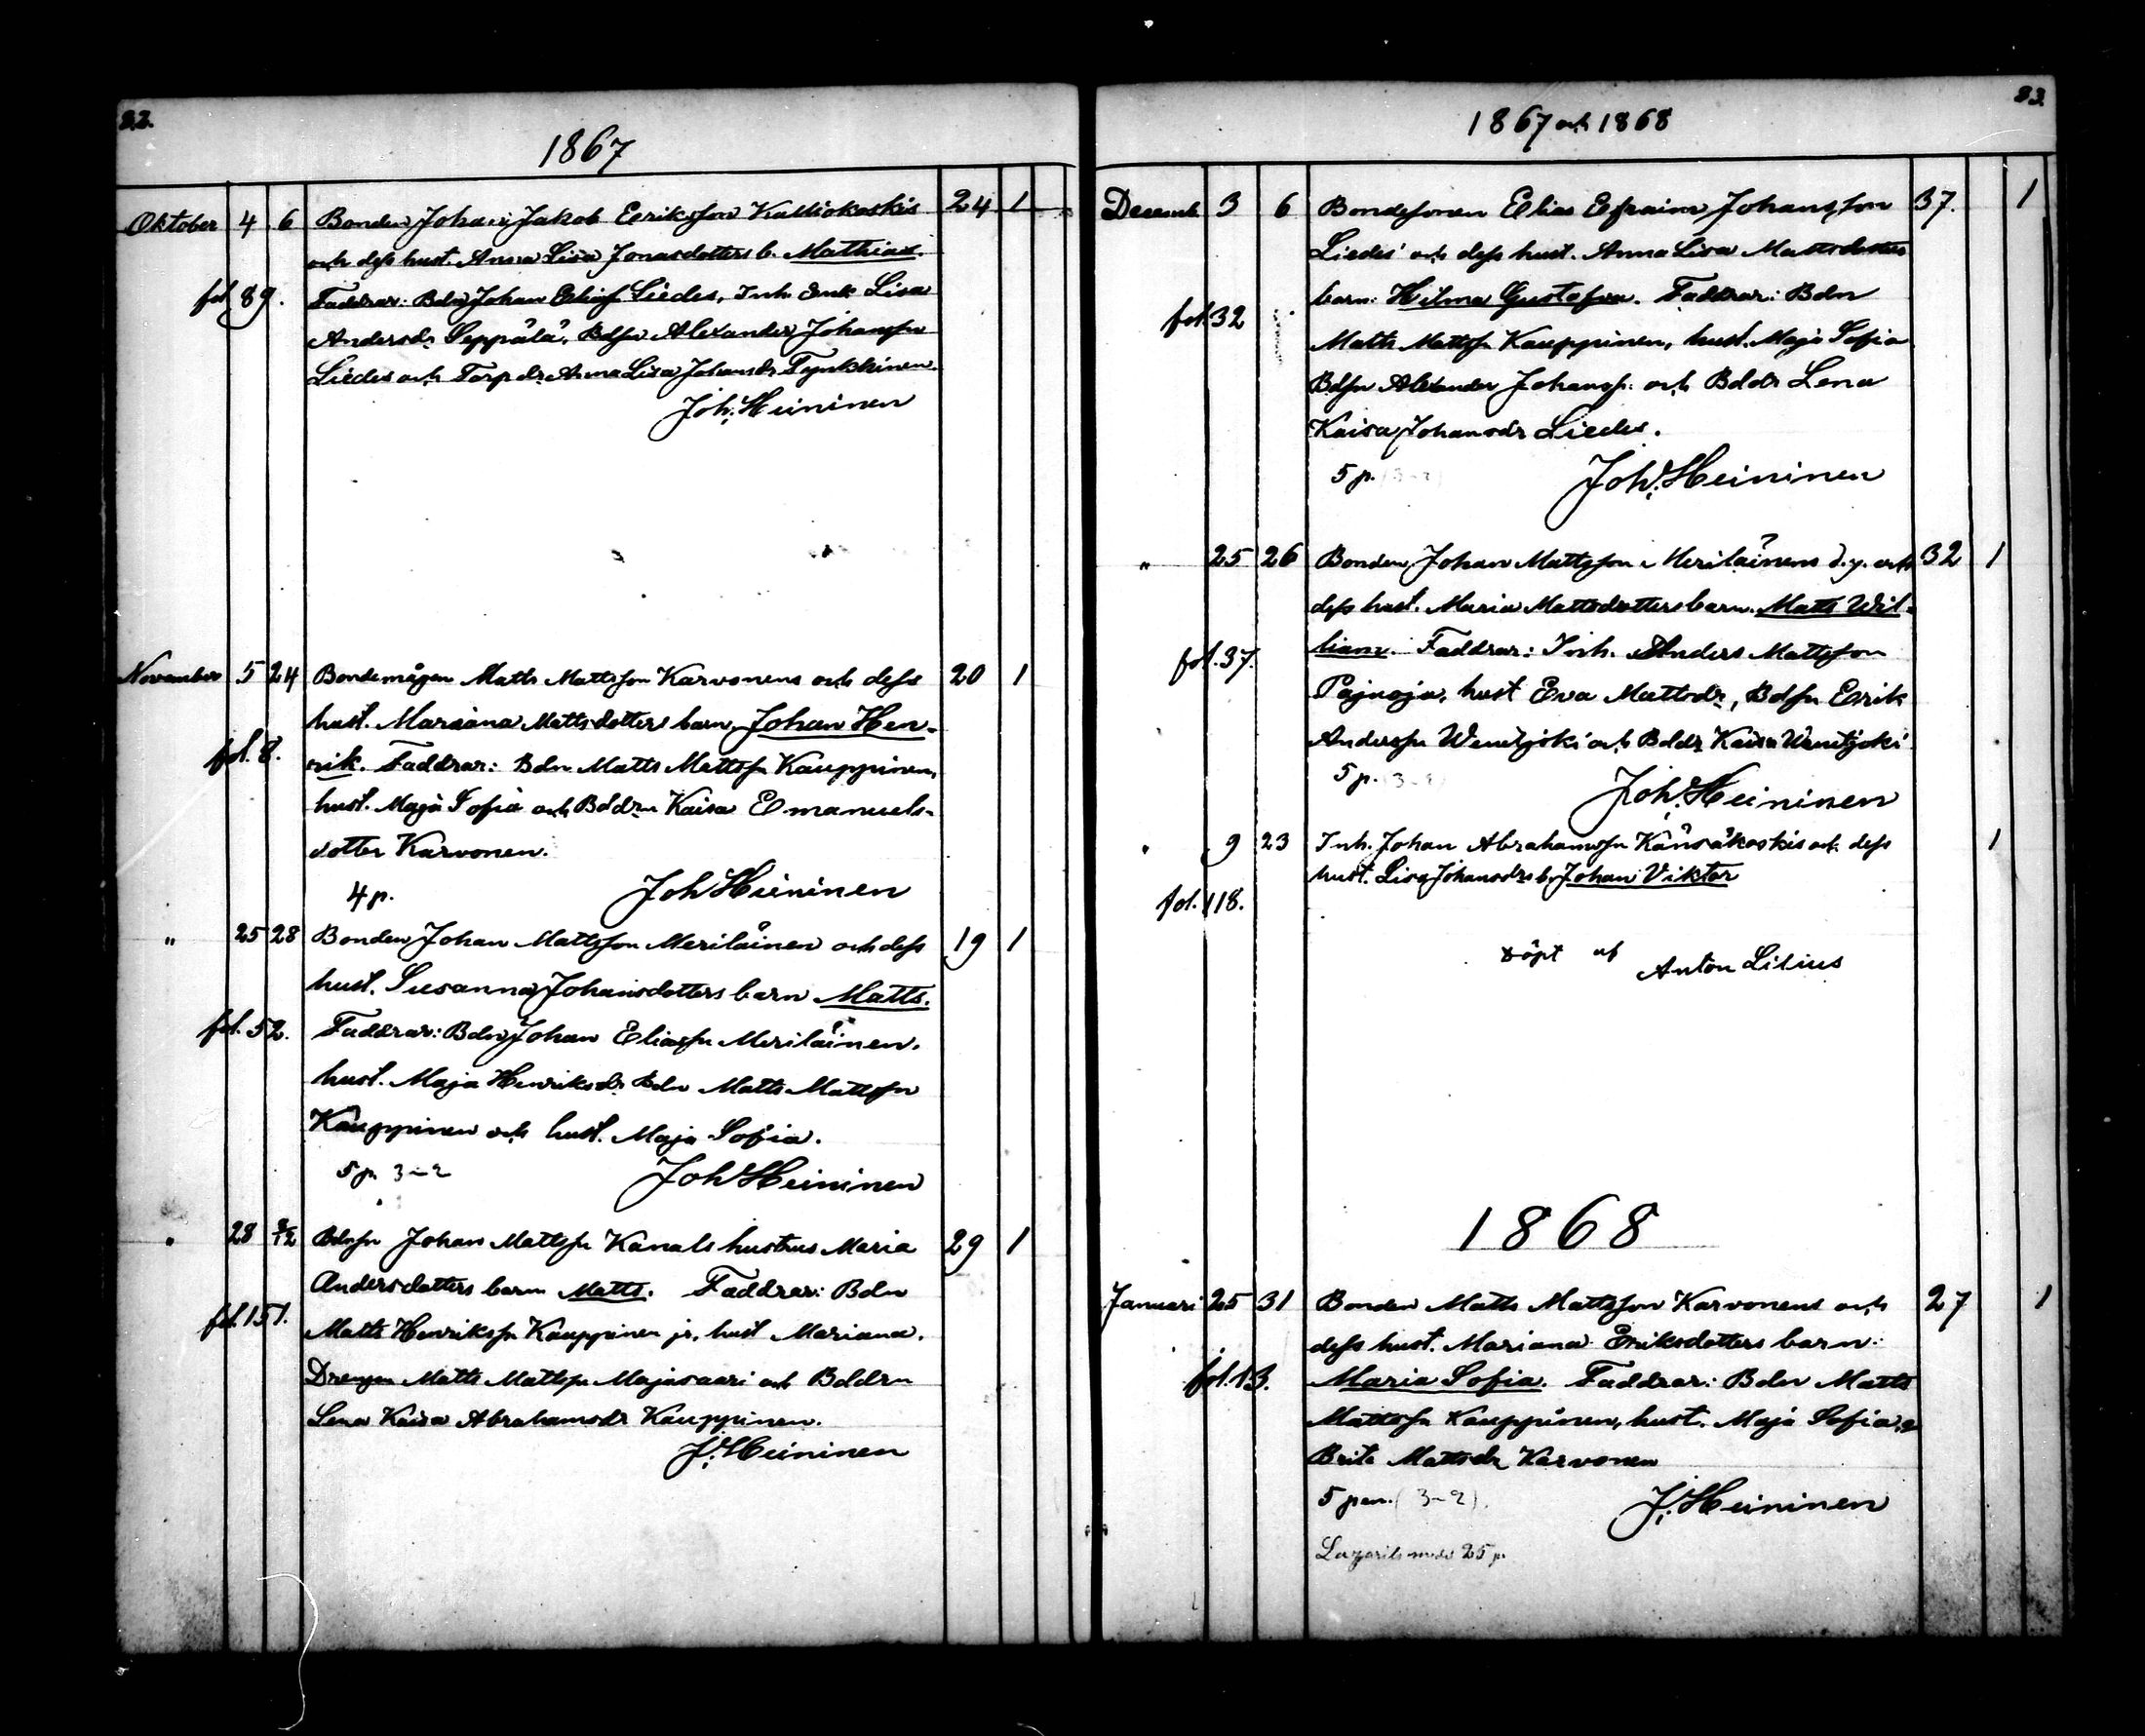 22.
1867
Oktober 4 6 Bonden Johan Jakob Eriksson Kalliokoskis 24 1
och dess hust. Anna Lisa Jonasdotters b. Mathias.
fol. 89. Faddrar: Bdn Johan Eliass Liedes, Inh. Enk. Lisa
Andersdr Seppälä, Bdsn Alexander Johanssn
Liedes och Torpdr Anna Lisa Johansdr Tynkkinen.
Joh. Heininen
November 5 24 Bondemågen Matts Mattsson Karvonens och dess 20 1
hust. Mariana Mattsdotters barn Johan Hen-
fol. 8. rik. Faddrar: Bdn Matts Mattssn Kauppinen,
hust. Maja Sofia och Bddrn Kaisa Emanuels-
dotter Karvonen.
4 p. Joh Heininen
" 25 28 Bonden Johan Mattsson Meriläinen och dess 19 1
hust. Susanna Johansdotters barn Matts.
fol. 52. Faddrar: Bdn Johan Eliassn Meriläinen,
hust. Maja Henriksdr Bdn Matts Mattssn
Kauppinen och hust. Maja Sofia.
5 p. 3-2 Joh Heininen
" 28 2/12 Bdnsn Johan Mattssn Kanals hustrus Maria 29 1
Andersdotters barn Matts. Faddrar: Bdn
fol. 151. Matts Henrikssn Kauppinen jr, hust Mariana.
Drengen Matts Mattssn Majasaari och Bddrn
Lena Kaisa Abrahamsdr Kauppinen.
J. Heininen
23.
1867 och 1868
Decemb. 3 6 Bondesonen Elias Efraim Johansson 37. 1
Liedes' och dess hust. Anna Lisa Mattsdotters
barn: Hilma Gustafva. Faddrar: Bdn
fol. 32 Matts Mattssn Kauppinen, hust. Maja Sofia
Bdsn Alexander Johanss. och Bddr Lena
Kaisa Johansdr Liedes.
5 p. (3-2) Joh. Heininen
" 25 26 Bonden Johan Mattsson Meriläinens d.y. och 32 1
dess hust. Maria Mattsdotters barn Matts Wil-
fol. 37. liam. Faddrar: Inh. Anders Mattsson
Pajuoja, hust Eva Mattsdr, Bdsn Erik
Anderssn Wenetjoki och Bddr Kaisa Wenetjoki
5 p. (3-2) Joh. Heininen
" 9 23 Inh. Johan Abrahamssn Känsäkoskis och dess 1
hust. Lisa Johansdrs b. Johan Viktor
fol. 118.
döpt af Anton Lilius
1868
Januari 25 31 Bonden Matts Mattsson Karvonens och 27 1
dess hust. Mariana Eriksdotters barn:
fol. 13. Maria Sofia. Faddrar: Bdn Matts
Mattssn Kauppinen, hust. Maja Sofia, o
Brita Mattsdr Karvonen
5 pen. (3-2). J. Heininen
Lazarits med 25 p.